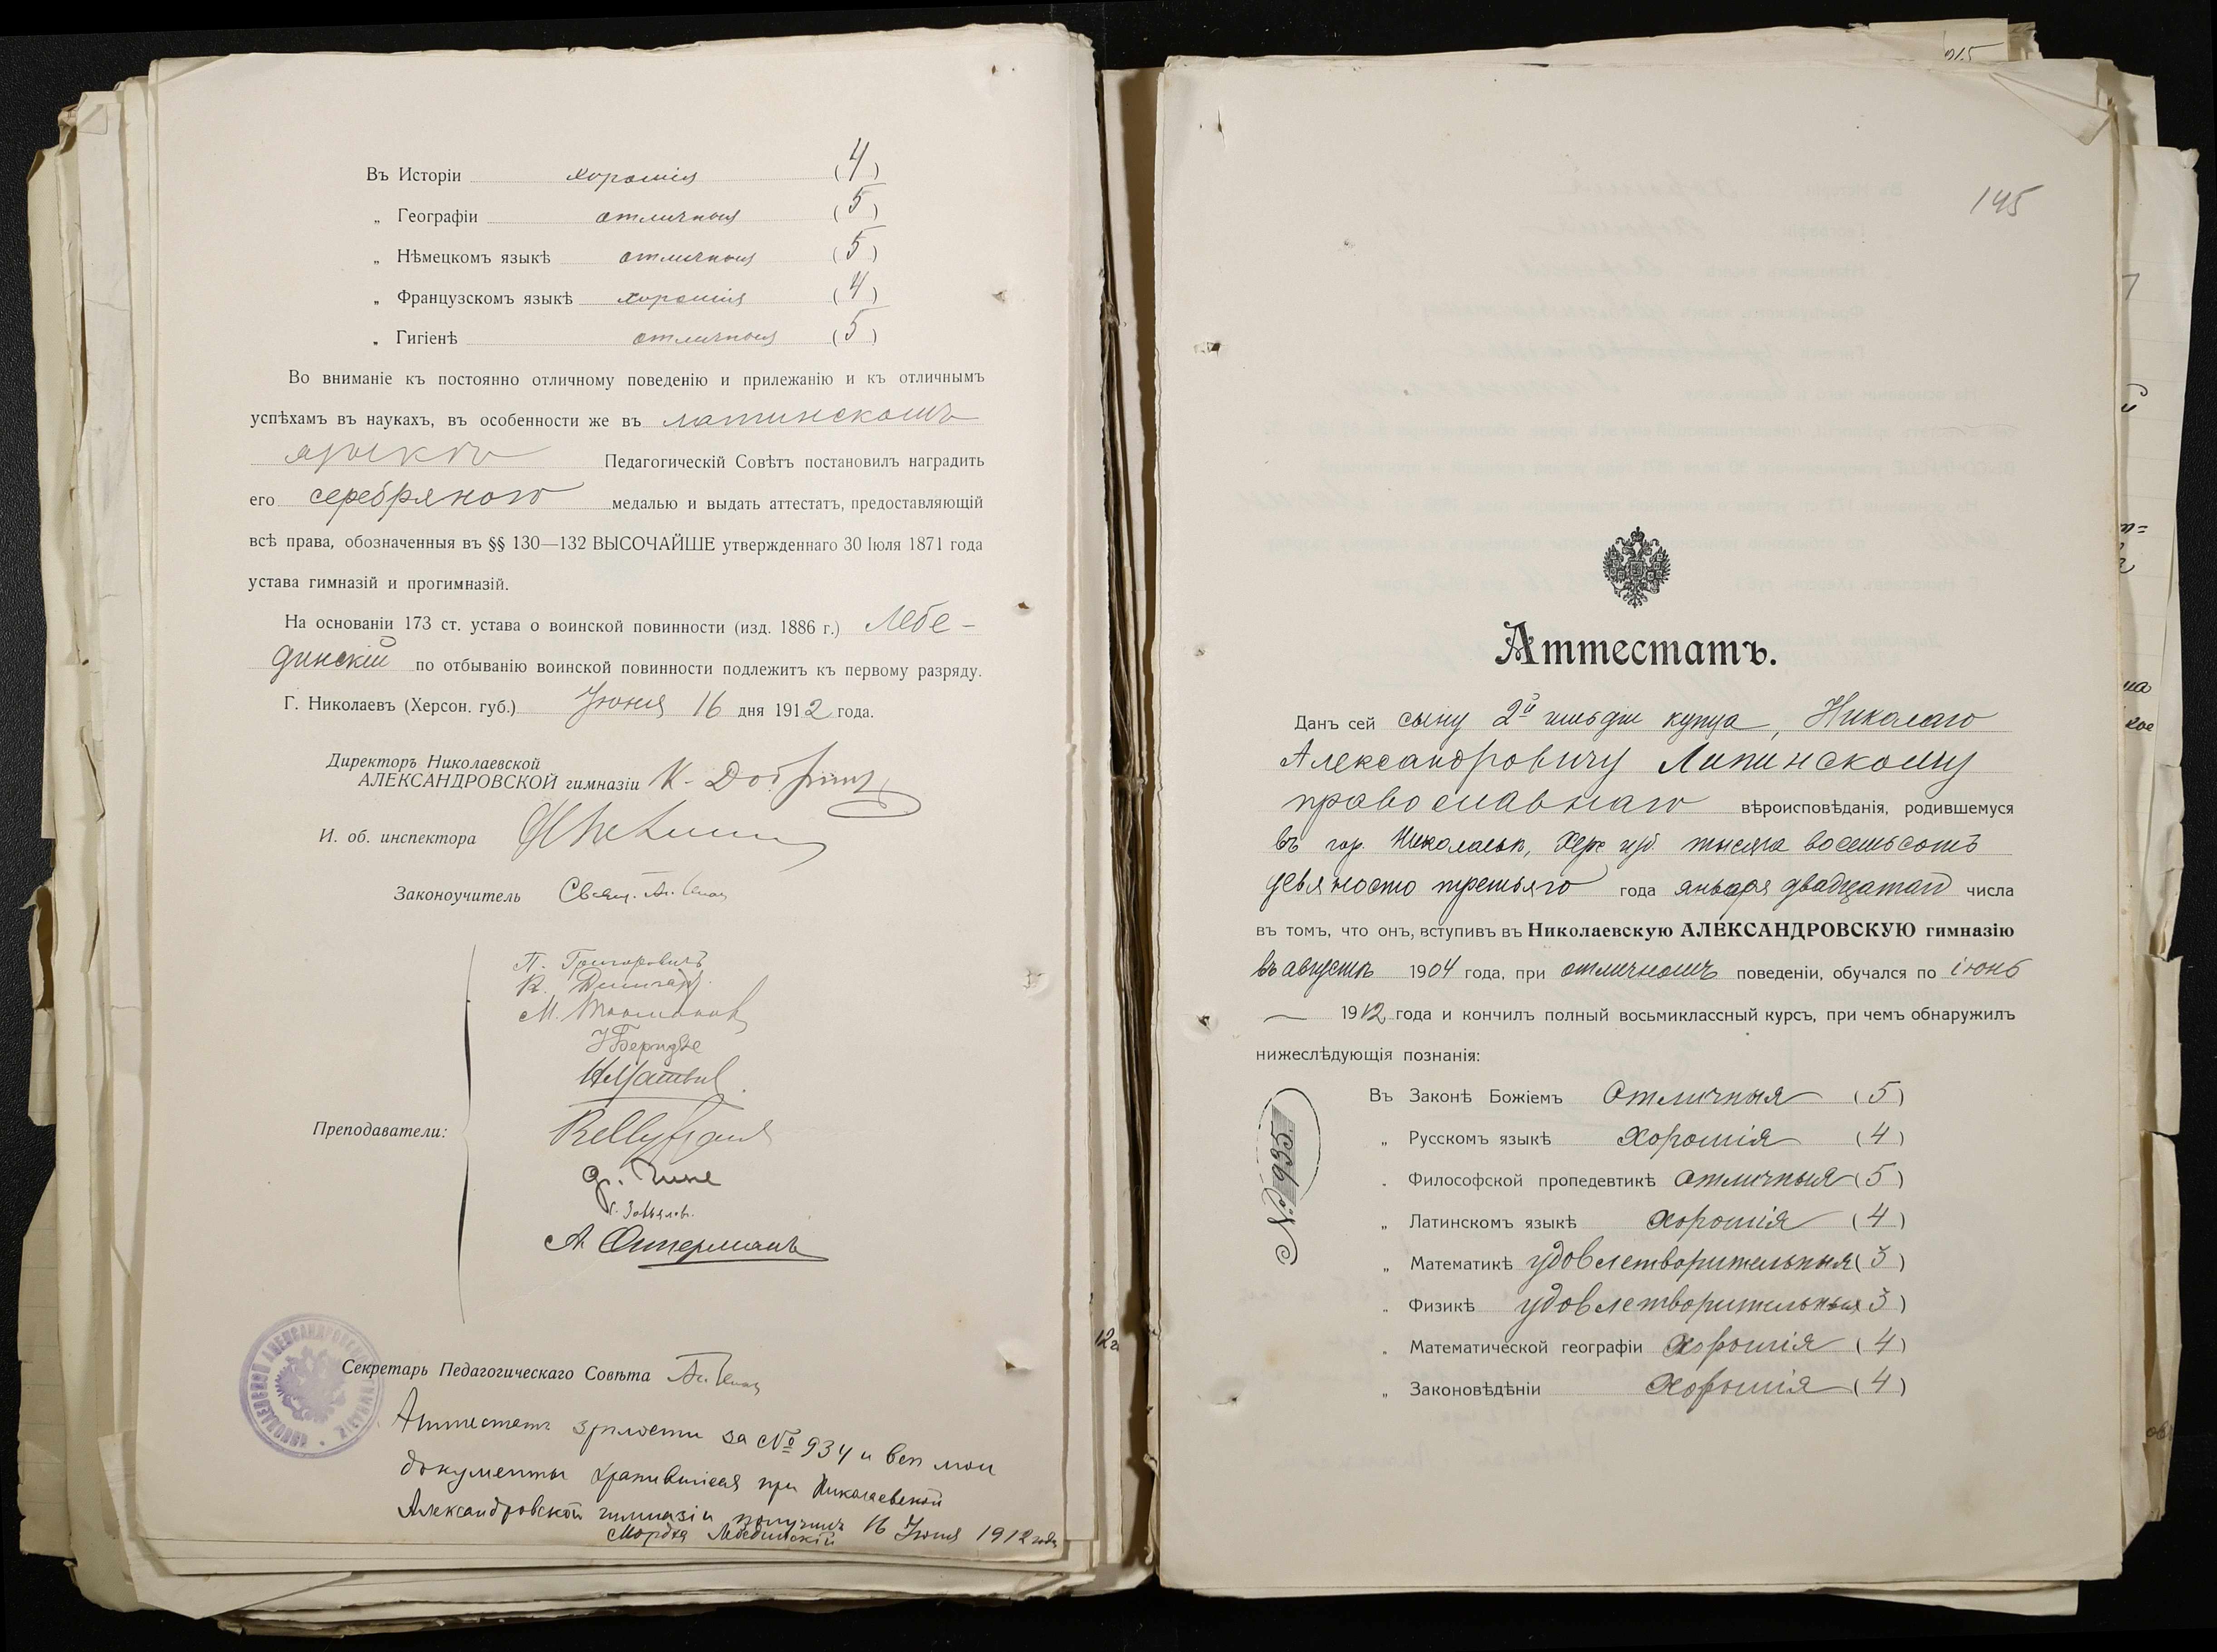 Въ Исторіи хорошія (4)
„ Географіи отличныя (5)
„ Нѣмецкомъ языкѣ отличныя (5)
„ Французскомъ языкѣ хорошія (4)
„ Гигіенѣ отличныя (5)
Во вниманіе къ постоянно отличному поведенію и прилежанію и къ отличнымъ
успѣхамъ въ наукахъ, въ особенности же въ латинскомъ
языкѣ Педагогическій Совѣтъ постановилъ наградить
его серебряною медалью и выдать аттестатъ, предоставляющій
всѣ права, обозначенныя въ §§ 130—132 ВЫСОЧАЙШЕ утвержденнаго 30 Іюля 1871 года
устава гимназій и прогимназій.
На основаніи 173 ст. устава о воинской повинности (изд. 1886 г.) Лебе-
динскій по отбыванію воинской повинности подлежитъ къ первому разряду.
Г. Николаевъ (Херсон. губ.) Іюня 16 дня 1912 года.
Директоръ Николаевской
АЛЕКСАНДРОВСКОЙ гимназіи К.
И. об. инспектора
Законоучитель Свящ. Ал.
П. Григоровичъ
К.
М.
Преподаватели:
А. Оттерманъ
Секретарь Педагогическаго Совѣта Ал.
Аттестатъ зрѣлости за № 934 и всѣ мои
документы хранившіеся при Николаевской
Александровской гимназіи получилъ 16 Іюня 1912 года
Мордка Лебединскій
12г
215
145
Аттестатъ.
Данъ сей сыну 2й гильдіи купца, Николаю
Александровичу Липинскому
православнаго вѣроисповѣданія, родившемуся
въ гор. Николаевѣ, Хер. губ. тысяча восемьсотъ
девяносто третьяго года января двадцатаго числа
въ томъ, что онъ, вступивъ въ Николаевскую АЛЕКСАНДРОВСКУЮ гимназію
въ августѣ 1904 года, при отличномъ поведеніи, обучался по іюнь
1912 года и кончилъ полный восьмиклассный курсъ, при чемъ обнаружилъ
нижеслѣдующія познанія:
Въ Законѣ Божіемъ Отличныя (5)
„ Русскомъ языкѣ Хорошія (4)
„ Философской пропедевтикѣ Отличныя (5)
„ Латинскомъ языкѣ хорошія (4)
„ Математикѣ удовлетворительныя (3)
„ Физикѣ удовлетворительныя (3)
„ Математической географіи хорошія (4)
„ Законовѣдѣніи Хорошія (4)
№ 935